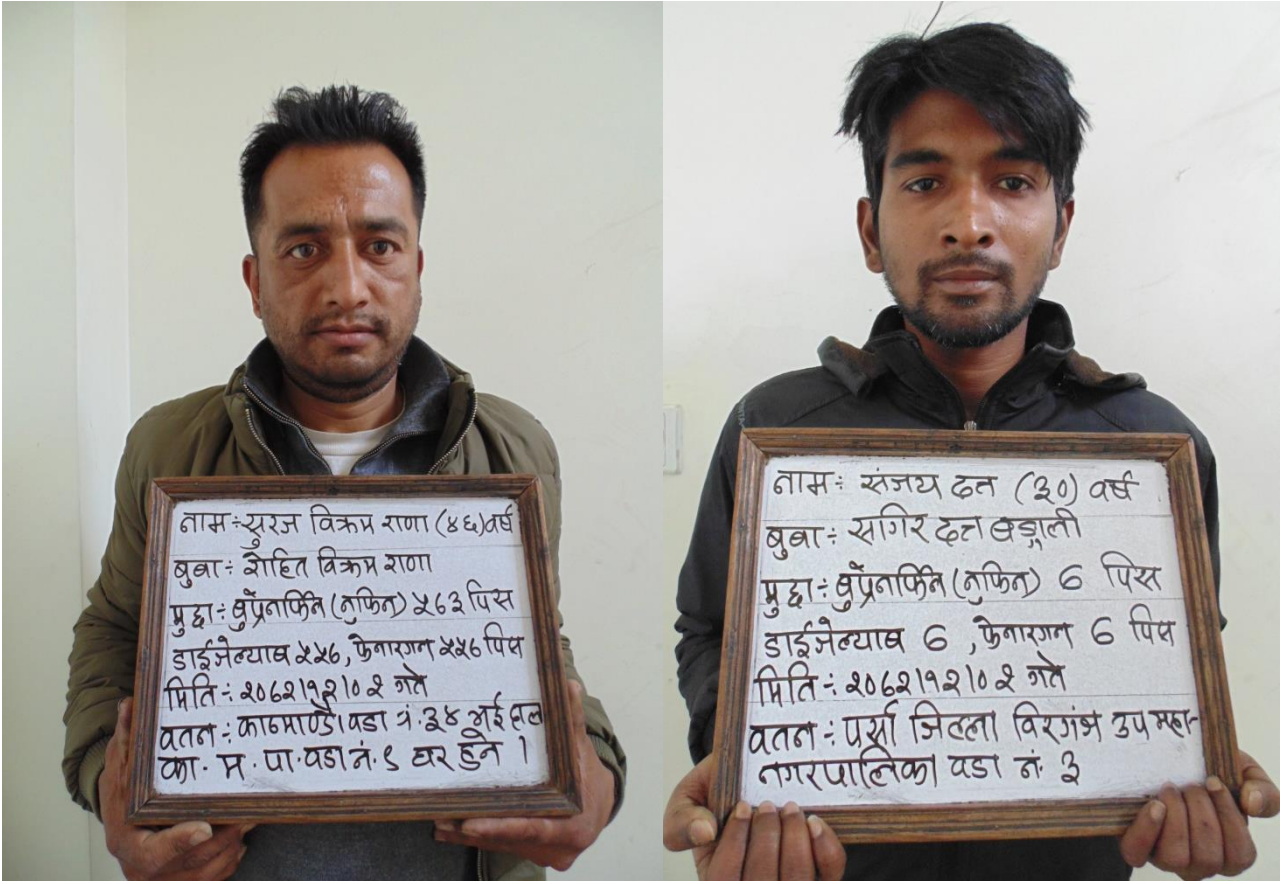 नाम ÷ सुरज विक्रम राणा (४६) वर्ष
बुबा ÷ रोहित विक्रम राणा
मुद्दा ÷ बुप्रेनर्फिन (नुफिन) ५७३ पिस
डाईजेल्याब ५५७, फेनारगन ५५७ पिस
मिति ÷ २०७२।१२।०२ गते
वतन ÷ काठमाण्डौ वडा नं. ३४ भई हाल
का. म. पा. वडा नं. ९ घर हुने ।
नाम ÷ संजय दत्त (३०) वर्ष
बुबा ÷ सागिर दत्त बङ्गाली
मुद्दा ÷ बुप्रेनर्फिन (नुफिन) ७ पिस
डाईजेल्याब ७, फेनारगन ७ पिस
मिति ÷ २०७२।१२।०२ गते
वतन ÷ पर्सा जिल्ला विरगंज उप महा-
नगरपालिका वडा नं. ३